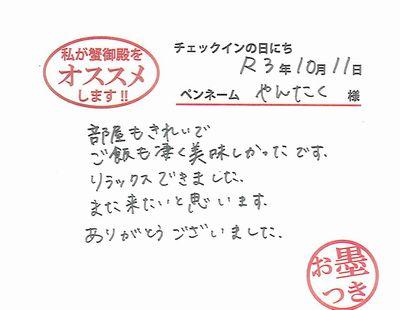 私が蟹御殿を
オススメ
します!!
チェックインの日にち
R3年10月11日
ペンネーム やんたく 様
部屋もきれいで
ご飯も凄く美味しかったです。
リラックスできました。
また来たいと思います。
ありがとうございました。
お墨
つき